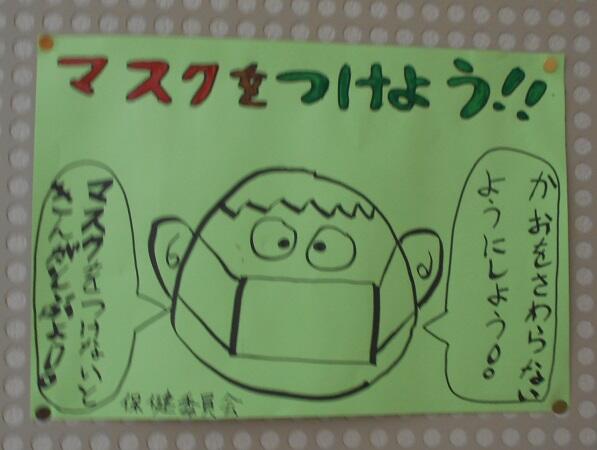 マスクをつけよう!!
かおをさわらない
ようにしよう。
マスクをつけないと
保健委員会